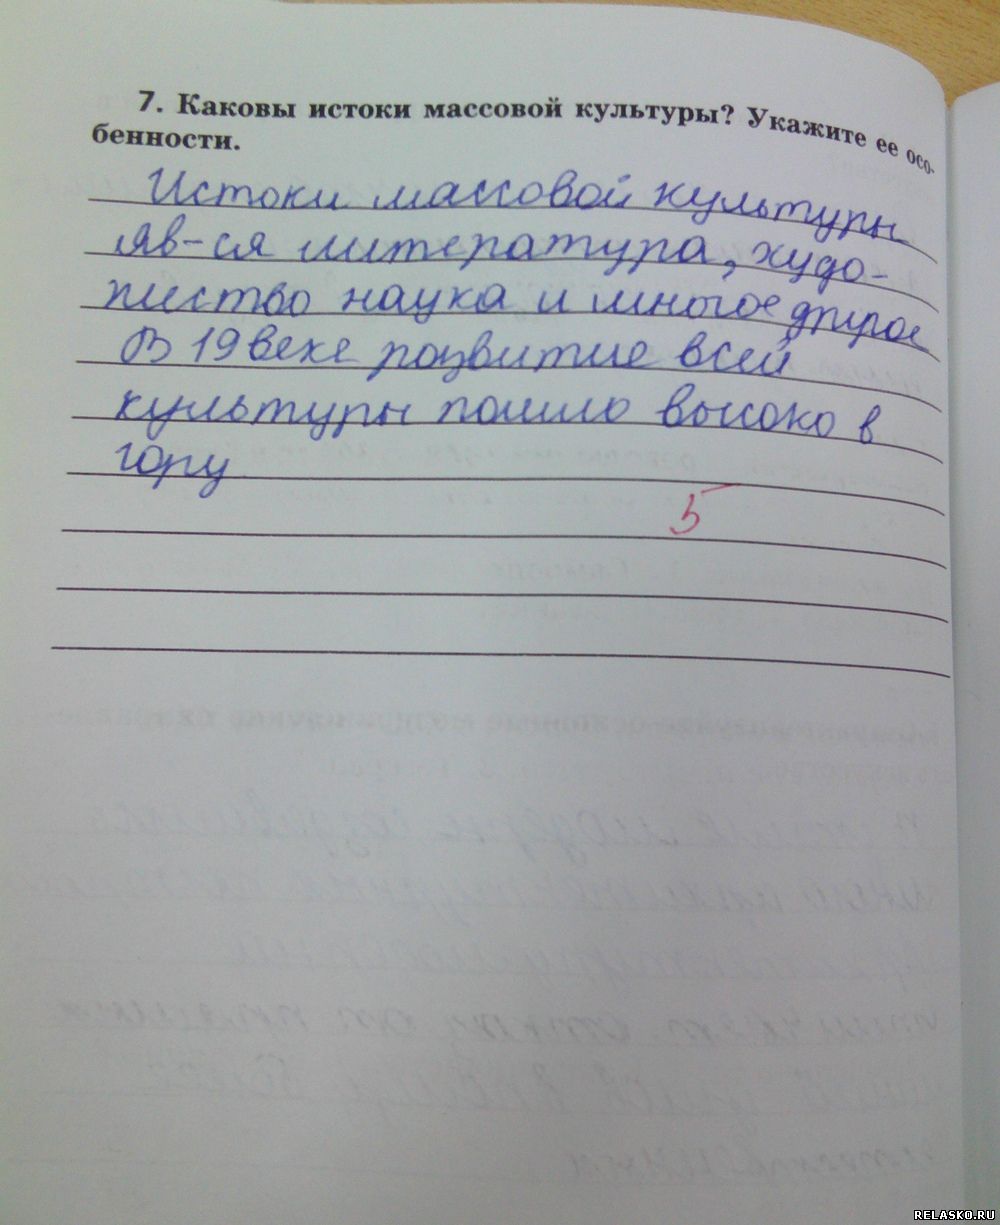 7. Каковы истоки массовой культуры? Укажите ее осо-
бенности.
Истоки массовой культуры
яв-ся литература, худо-
жество наука и многое другое
В 19 веке развитие всей
культуры пошло высоко в
гору
5
RELASKO.RU